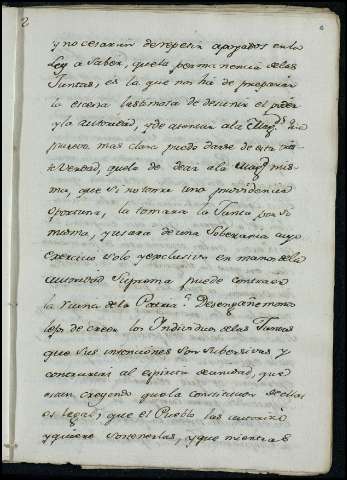 2
y no cesarán de repetir apoyados en la
Ley a Saber, que la permanencia de las
Juntas, es la que nos há de preparar
la escena de desunir el poder
y la autoridad, y de atentar a la Mag.d
prueva mas clara puede darse de esta
verdad, que la de decir a la Mag.d mis-
ma, que si no toma una providencia
oportuna, la tomara la Junta por si
misma, y usara de una Soberania cuyo
exercicio solo y exclusivo en manos de la
autoridad Suprema puede contener
la ruina de la Patria. Desengañemonos
lejos de creer los Individuos de las Juntas
que sus intenciones son subersivas y
contrarias al espiritu de unidad, que
estan creyendo que la constitucion de ellas
es legal; que el Pueblo las autorizó
y quiere sostenerlas, y que mientras